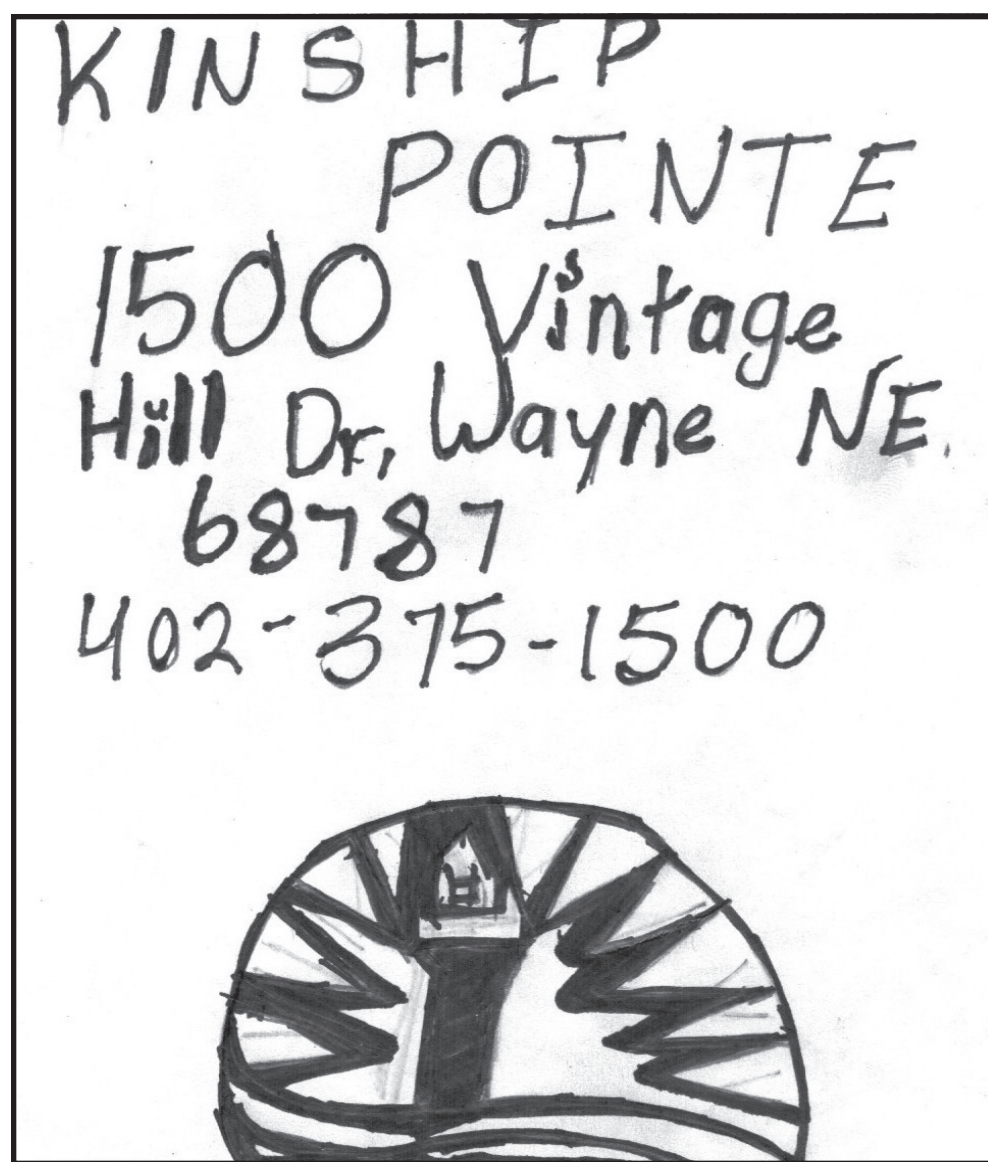 KINSHIP
POINTE
1500 Vintage
Hill Dr, Wayne NE.
68787
402-375-1500